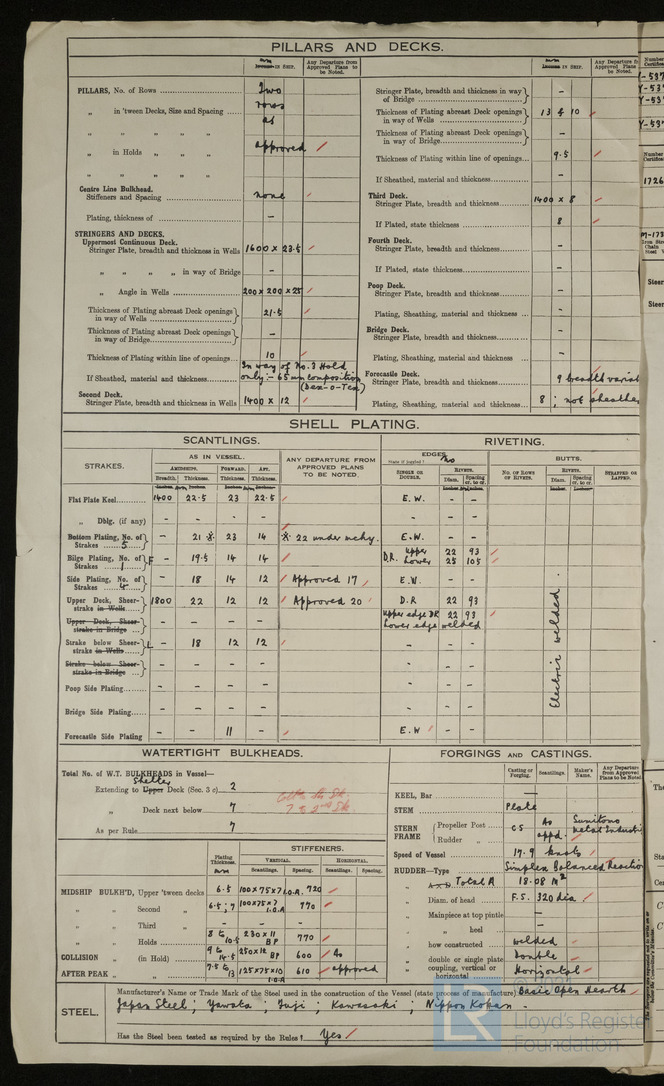 PILLARS AND DECKS.
mm
Inches IN SHIP.
Any Departure from Approved Plans to be Noted.
PILLARS, No. of Rows Two rows
„ in 'tween Decks, Size and Spacing as
„ „ „ „ „
„ in Holds „ „ approved /
„ „ „ „ „
Centre Line Bulkhead.
Stiffeners and Spacing none
Plating, thickness of -
STRINGERS AND DECKS.
Uppermost Continuous Deck.
Stringer Plate, breadth and thickness in Wells 1600 x 23.5
„ „ „ „ in way of Bridge -
„ Angle in Wells 200 x 200 x 25
Thickness of Plating abreast Deck openings in way of Wells 21.5
Thickness of Plating abreast Deck openings in way of Bridge -
Thickness of Plating within line of openings 10
If Sheathed, material and thickness In way of No.3 Hold only :- 65 mm composition (Dex-o-Tex)
Second Deck.
Stringer Plate, breadth and thickness in Wells 1400 x 12
mm
Inches IN SHIP.
Any Departure from Approved Plans to be Noted.
Stringer Plate, breadth and thickness in way of Bridge -
Thickness of Plating abreast Deck openings in way of Wells 13 & 10
Thickness of Plating abreast Deck openings in way of Bridge -
Thickness of Plating within line of openings 9.5
If Sheathed, material and thickness -
Third Deck.
Stringer Plate, breadth and thickness 1400 x 8
If Plated, state thickness 8
Fourth Deck.
Stringer Plate, breadth and thickness -
If Plated, state thickness -
Poop Deck.
Stringer Plate, breadth and thickness -
Plating, Sheathing, material and thickness -
Bridge Deck.
Stringer Plate, breadth and thickness -
Plating, Sheathing, material and thickness -
Forecastle Deck.
Stringer Plate, breadth and thickness 9 breadth variat
Plating, Sheathing, material and thickness 8 ; not sheathe
SHELL PLATING.
SCANTLINGS.
RIVETING.
STRAKES.
AS IN VESSEL.
AMIDSHIPS. FORWARD. AFT.
Breadth. Thickness. Thickness. Thickness.
ANY DEPARTURE FROM APPROVED PLANS TO BE NOTED.
EDGES.
State if joggled? No
SINGLE OR DOUBLE.
RIVETS.
Diam. Spacing cr. to cr.
BUTTS.
NO. OF ROWS OF RIVETS.
RIVETS.
Diam. Spacing cr. to cr.
STRAPPED OR LAPPED.
Flat Plate Keel 1400 22.5 23 22.5 E.W. - -
„ Dblg. (if any) - - - - - - -
Bottom Plating, No. of Strakes 5 - 21 ※ 23 14 ※ 22 under mchy. E.W. - -
Bilge Plating, No. of Strakes 1 F - 19.5 14 14 D.R. upper 22 93 lower 25 105
Side Plating, No. of Strakes 4 - 18 14 12 Approved 17 E.W. - -
Upper Deck, Sheerstrake in Wells 1800 22 12 12 Approved 20 D.R 22 93
Upper Deck, Sheerstrake in Bridge - - - - upper edge DR 22 93 lower edge welded
Strake below Sheerstrake in Wells L - 18 12 12 - - -
Strake below Sheerstrake in Bridge - - - - - - -
Poop Side Plating - - - - - - -
Bridge Side Plating - - - - - - -
Forecastle Side Plating - - 11 - E.W - -
Electric welded.
WATERTIGHT BULKHEADS.
Total No. of W.T. BULKHEADS in Vessel—
Extending to Upper Shelter Deck (Sec. 3 c) 2
„ Deck next below 7
As per Rule 7
Plating Thickness. mm
STIFFENERS.
VERTICAL. HORIZONTAL.
Scantlings. Spacing. Scantlings. Spacing.
MIDSHIP BULKH'D, Upper 'tween decks 6.5 100x75x7 I.O.A. 720
„ „ Second „ 6.5 ; 7 100x75x7 I.O.A 770
„ „ Third „ - - -
„ „ Holds 8 to 10.5 230x11 BP 770
COLLISION „ (in Hold) 9 to 14.5 250x12 BP 600 As
AFTER PEAK „ „ 7.5 to 13 125x75x10 I.O.A 610 approved
FORGINGS AND CASTINGS.
Casting or Forging. Scantlings. Maker's Name. Any Departure from Approved Plans to be Noted
KEEL, Bar —
STEM Plate
STERN FRAME { Propeller Post CS As Sumitomo
Rudder „ appd. Metal Industri
Speed of Vessel 17.9 knots
RUDDER—Type Simplex Balanced Reaction
„ Total A 18.08 m²
„ Diam. of head F.S. 320 dia
Mainpiece at top pintle —
„ heel -
„ how constructed welded
„ double or single plate Double
„ coupling, vertical or horizontal Horizontal
STEEL.
Manufacturer's Name or Trade Mark of the Steel used in the construction of the Vessel (state process of manufacture) Basic Open Hearth
Japan Steel ; Yawata ; Fuji ; Kawasaki ; Nippon Kokan
Has the Steel been tested as required by the Rules? Yes /
© 2021
LR
Lloyd's Register
Foundation
Number
Certific
Number
Certific
1726
M-173
Steer
Steer